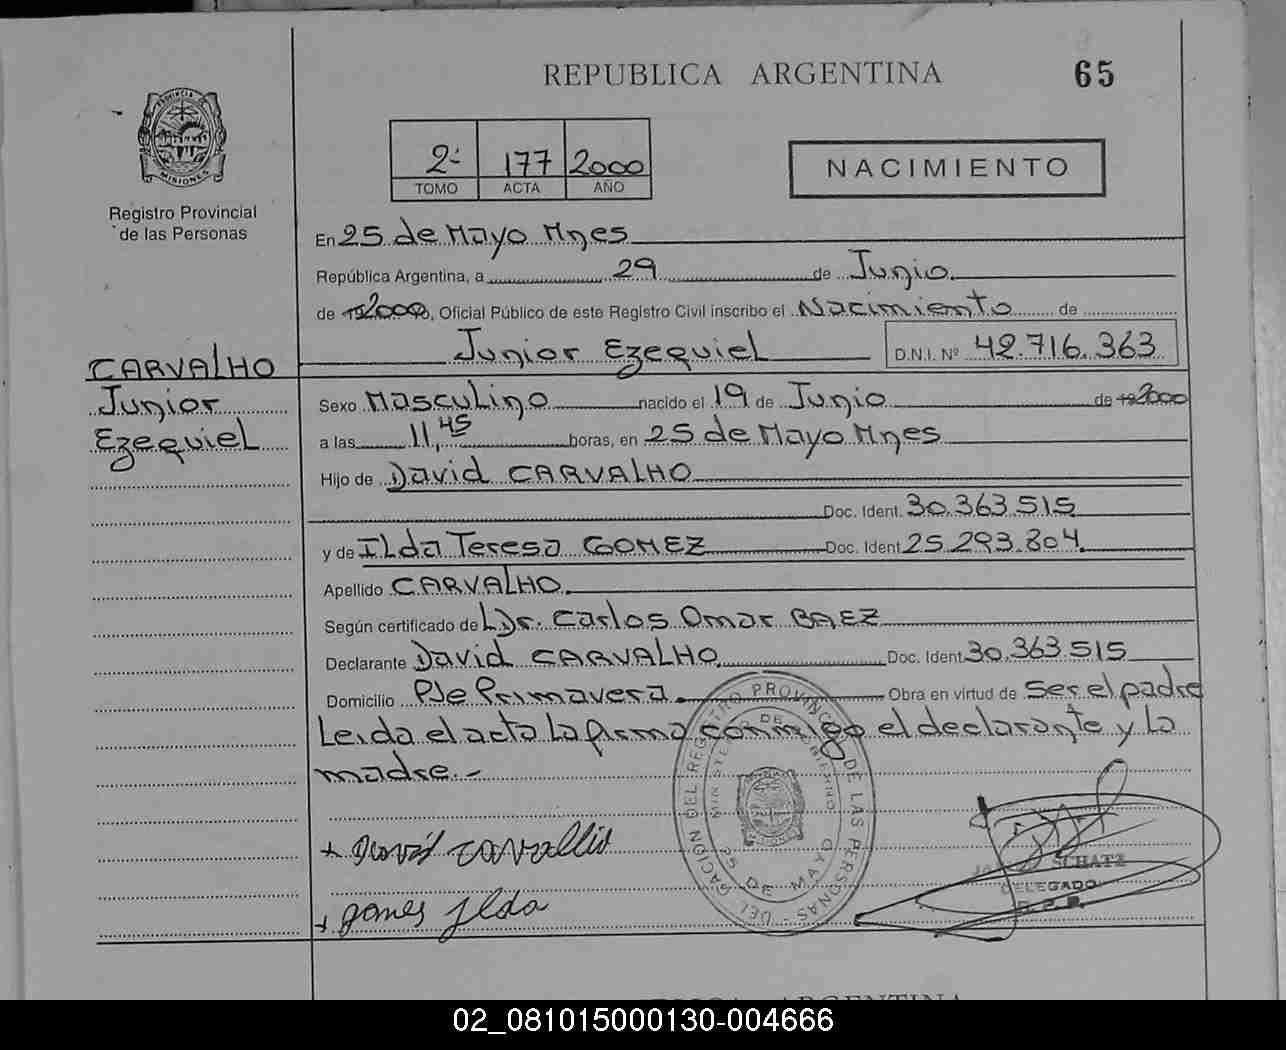 REPUBLICA ARGENTINA
65
PROVINCIA DE
MISIONES
Registro Provincial
de las Personas
2º 177 2000
TOMO ACTA AÑO
NACIMIENTO
En 25 de Mayo Mnes
República Argentina, a 29 de Junio
de 2000, Oficial Público de este Registro Civil inscribo el Nacimiento de
Junior Ezequiel D.N.I. Nº 42.716.363
CARVALHO
Junior
Ezequiel
Sexo Masculino nacido el 19 de Junio de 2000
a las 11,45 horas, en 25 de Mayo Mnes
Hijo de David CARVALHO
Doc. Ident. 30.363.515
y de Ilda Teresa GOMEZ Doc. Ident 25.293.804
Apellido CARVALHO.
Según certificado de Dr. Carlos Omar BAEZ
Declarante David CARVALHO Doc. Ident 30.363.515
Domicilio Pje Primavera. Obra en virtud de Ser el padre
Leida el acta la firma conmigo el declarante y la
madre.-
DEL REGISTRO PROVINCIAL DE LAS PERSONAS - DEL
MINISTERIO DE GOBIERNO
25 DE MAYO
+ David Carvallio
+ gomes Ilda
SCHATZ
DELEGADO
REPUBLICA ARGENTINA
02_081015000130-004666